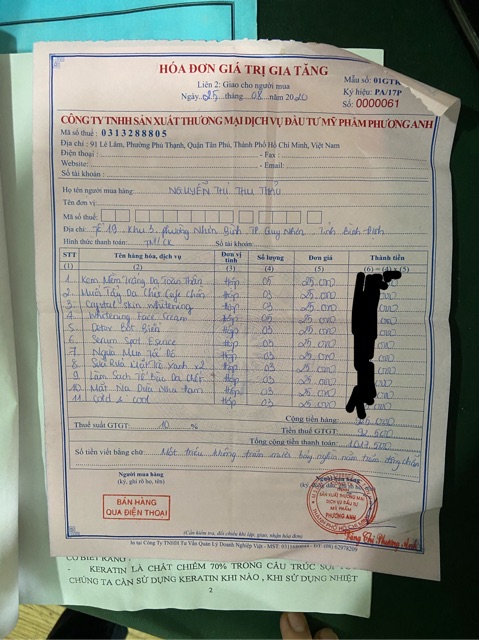 HÓA ĐƠN GIÁ TRỊ GIA TĂNG
Liên 2: Giao cho người mua
Ngày 25 tháng 08 năm 2020
Mẫu số: 01GTK
Ký hiệu: PA/17P
Số: 0000061
CÔNG TY TNHH SẢN XUẤT THƯƠNG MẠI DỊCH VỤ ĐẦU TƯ MỸ PHẨM PHƯƠNG ANH
Mã số thuế : 0313288805
Địa chỉ : 91 Lê Lâm, Phường Phú Thạnh, Quận Tân Phú, Thành Phố Hồ Chí Minh, Việt Nam
Điện thoại : - Fax :
Website: - Email:
Số tài khoản :
Họ tên người mua hàng: NGUYỄN THỊ THU THẢO
Tên đơn vị:
Mã số thuế:
Địa chỉ: Tổ 19, Khu 3, phường Nhơn Bình, TP Quy Nhơn, Tỉnh Bình Định
Hình thức thanh toán: TM/CK Số tài khoản:
STT Tên hàng hóa, dịch vụ Đơn vị tính Số lượng Đơn giá Thành tiền
(1) (2) (3) (4) (5) (6) = (4) x (5)
1 Kem Mềm Trắng Da Toàn Thân Hộp 05 25.000
2 Muối Tẩy Da Chết Cafe Hộp 03 25.000
3 Crystal Skin Whitening Hộp 03 25.000
4 Whitening Face Cream Hộp 03 25.000
5 Detox Bọt Biển Hộp 03 25.000
6 Serum Spot Esence Hộp 03 25.000
7 Ngừa Mụn Hộp 03 25.000
8 Sữa Rửa Mặt Trà Xanh x2 Hộp 03 25.000
9 Làm Sạch Tế Bào Da Chết Hộp 03 25.000
10 Mặt Nạ Dưa Nha Đam Hộp 03 25.000
11 Cold & cool Hộp 03 25.000
Cộng tiền hàng:
Thuế suất GTGT: 10 % Tiền thuế GTGT: 92.500
Tổng cộng tiền thanh toán: 1.017.500
Số tiền viết bằng chữ: Một triệu không trăm mười bảy nghìn năm trăm đồng chẵn
Người mua hàng
(ký, ghi rõ họ, tên)
Người bán hàng
BÁN HÀNG
QUA ĐIỆN THOẠI
SẢN XUẤT THƯƠNG MẠI
DỊCH VỤ ĐẦU TƯ
MỸ PHẨM
PHƯƠNG ANH
Tăng Chị Phương Anh
(Cần kiểm tra, đối chiếu khi lập, giao, nhận hóa đơn)
In tại Công Ty TNHH Tư Vấn Quản Lý Doanh Nghiệp Việt - MST:
CÓ BIẾT RẰNG :
- KERATIN LÀ CHẤT CHIẾM 70% TRONG CẤU TRÚC SỢI
CHÚNG TA CẦN SỬ DỤNG KERATIN KHI NÀO , KHI SỬ DỤNG NHIỆT
2